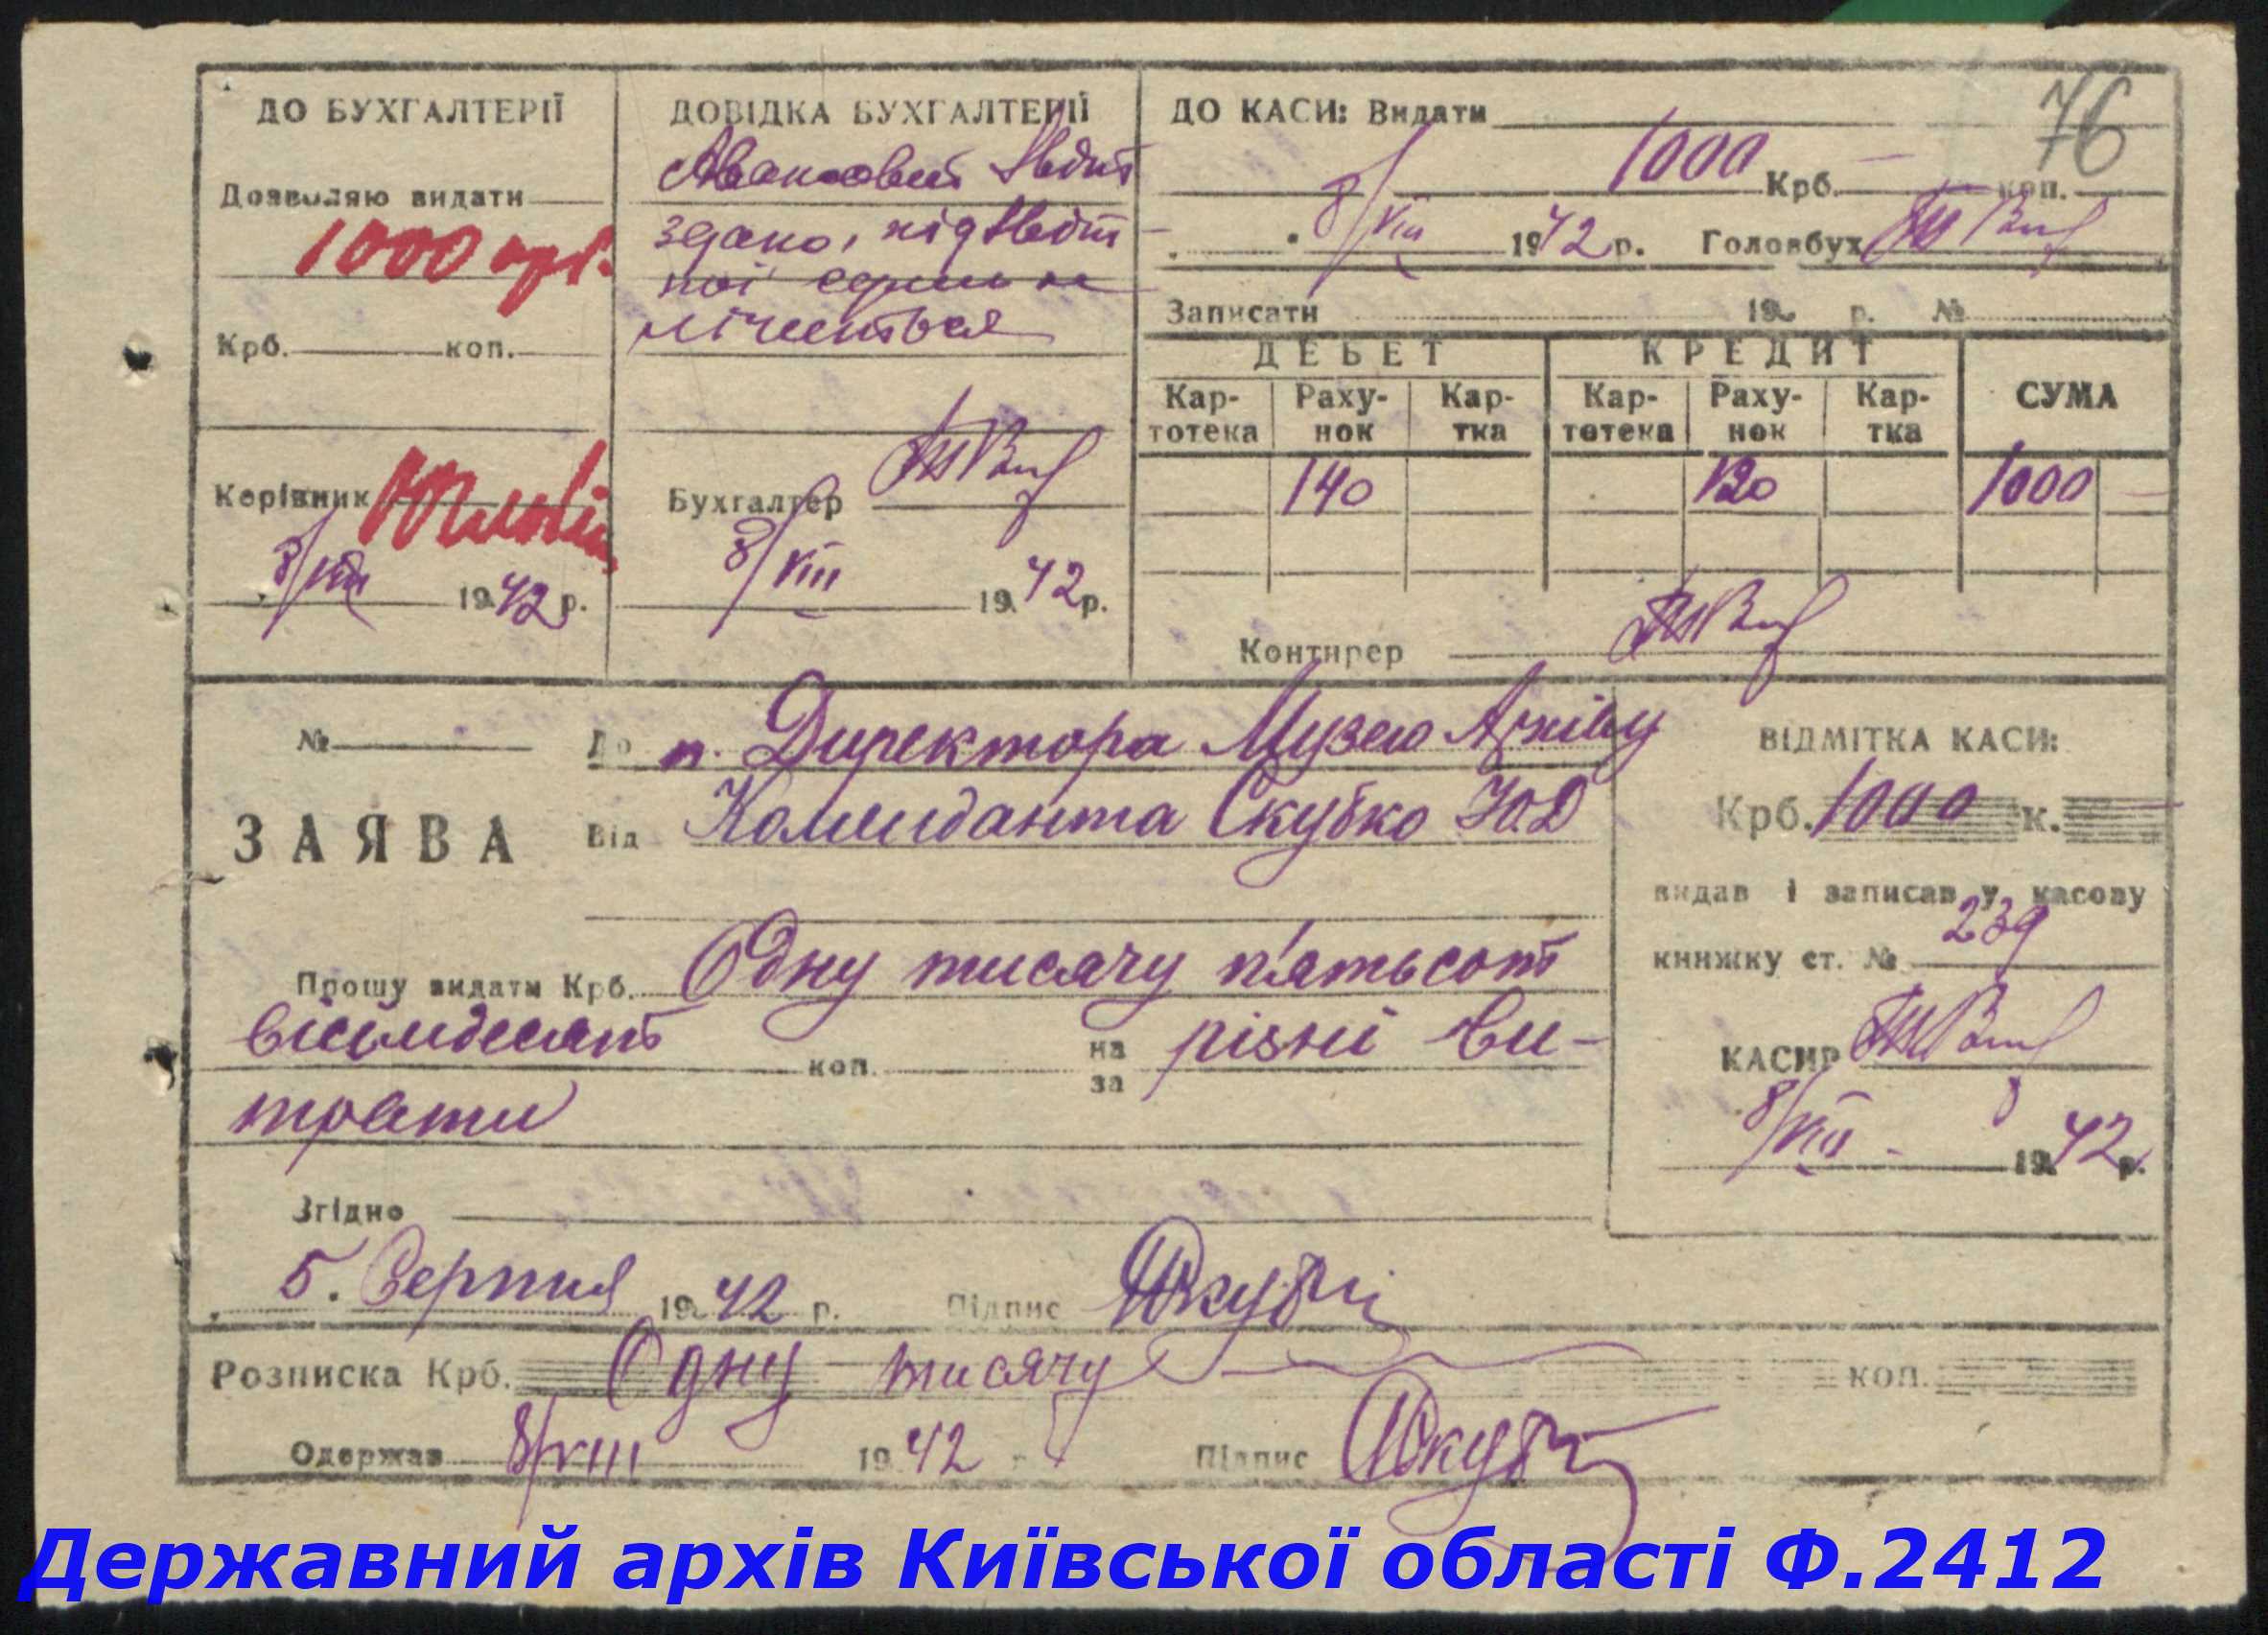 76
ДО БУХГАЛТЕРІЇ
Дозволяю видати
1000 крб.
Крб. коп.
Керівник
8/VIII 1942 р.
ДОВІДКА БУХГАЛТЕРІЇ
Авансовий звіт
здано, підзвіт
ної суми не
лічиться
Бухгалтер
8/VIII 1942 р.
ДО КАСИ: Видати
1000 Крб. — коп.
8/VIII 1942 р. Головбух
Записати 19 р. №
ДЕБЕТ КРЕДИТ СУМА
Кар-тотека Раху-нок Кар-тка Кар-тотека Раху-нок Кар-тка
140 120 1000 —
Контирер
№ До п. Директора Музею Архіву
ЗАЯВА Від Коменданта Скубко Ю.Д
Прошу видати Крб. Одну тисячу п'ятьсот
вісімдесят коп. на за різні ви-
трати
Згідно
5. Серпня 1942 р. Підпис
ВІДМІТКА КАСИ:
Крб. 1000 к.
видав і записав у касову
книжку ст. № 239
КАСИР
8/VIII 1942 р.
Розписка Крб. Одну тисячу коп.
Одержав 8/VIII 1942 р Підпис
Державний архів Київської області Ф.2412